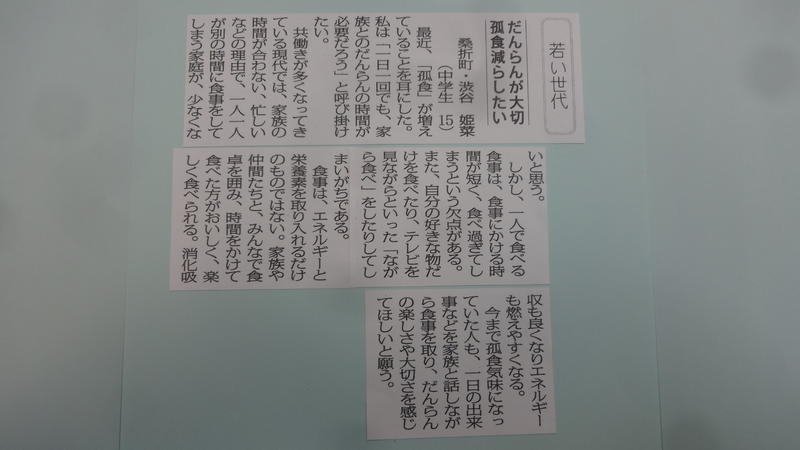 若い世代
だんらんが大切
孤食減らしたい
桑折町・渋谷 姫菜
(中学生 15)
最近、「孤食」が増え
ていることを耳にした。
私は「一日一回でも、家
族とのだんらんの時間が
必要だろう」と呼び掛け
たい。
共働きが多くなってき
ている現代では、家族の
時間が合わない、忙しい
などの理由で、一人一人
が別の時間に食事をして
しまう家庭が、少なくな
いと思う。
しかし、一人で食べる
食事は、食事にかける時
間が短く、食べ過ぎてし
まうという欠点がある。
また、自分の好きな物だ
けを食べたり、テレビを
見ながらといった「なが
ら食べ」をしたりしてし
まいがちである。
食事は、エネルギーと
栄養素を取り入れるだけ
のものではない。家族や
仲間たちと、みんなで食
卓を囲み、時間をかけて
食べた方がおいしく、楽
しく食べられる。消化吸
収も良くなりエネルギー
も燃えやすくなる。
今まで孤食気味になっ
ていた人も、一日の出来
事などを家族と話しなが
ら食事を取り、だんらん
の楽しさや大切さを感じ
てほしいと願う。